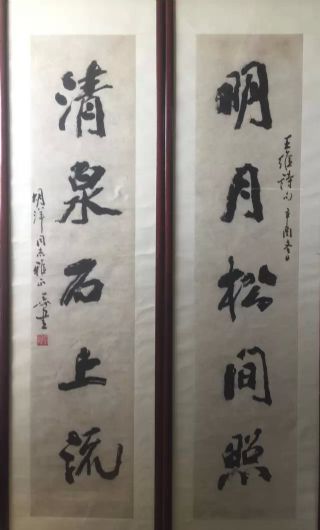 明月松间照
王維詩句 辛酉冬日
清泉石上流
同志雅正